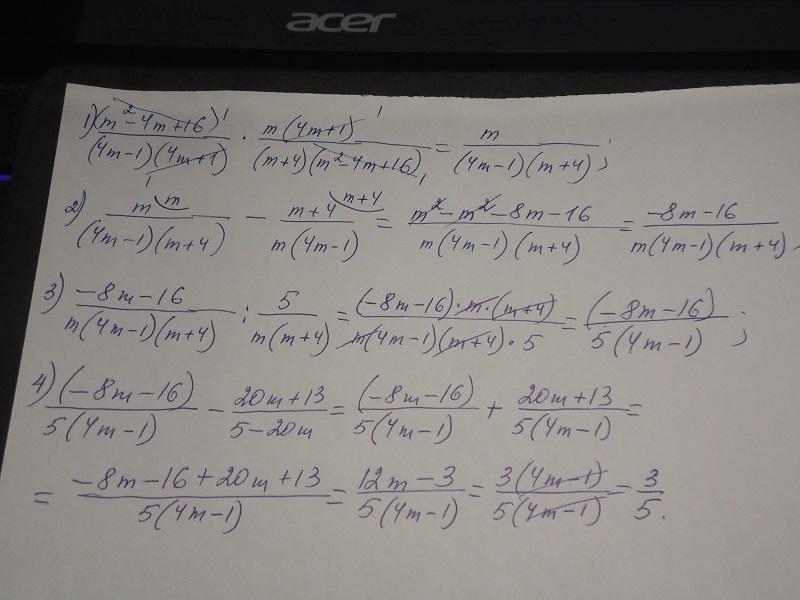 acer
1) (m²-4m+16)¹/(4m-1)(4m+1)₁ · m(4m+1)¹/(m+4)(m²-4m+16)₁ = m/(4m-1)(m+4);
2) m\m/(4m-1)(m+4) - m+4\m+4/m(4m-1) = m²-m²-8m-16/m(4m-1)(m+4) = -8m-16/m(4m-1)(m+4);
3) -8m-16/m(4m-1)(m+4) : 5/m(m+4) = (-8m-16)·m·(m+4)/m(4m-1)(m+4)·5 = (-8m-16)/5(4m-1);
4) (-8m-16)/5(4m-1) - 20m+13/5-20m = (-8m-16)/5(4m-1) + 20m+13/5(4m-1) =
= -8m-16+20m+13/5(4m-1) = 12m-3/5(4m-1) = 3(4m-1)/5(4m-1) - 3/5.